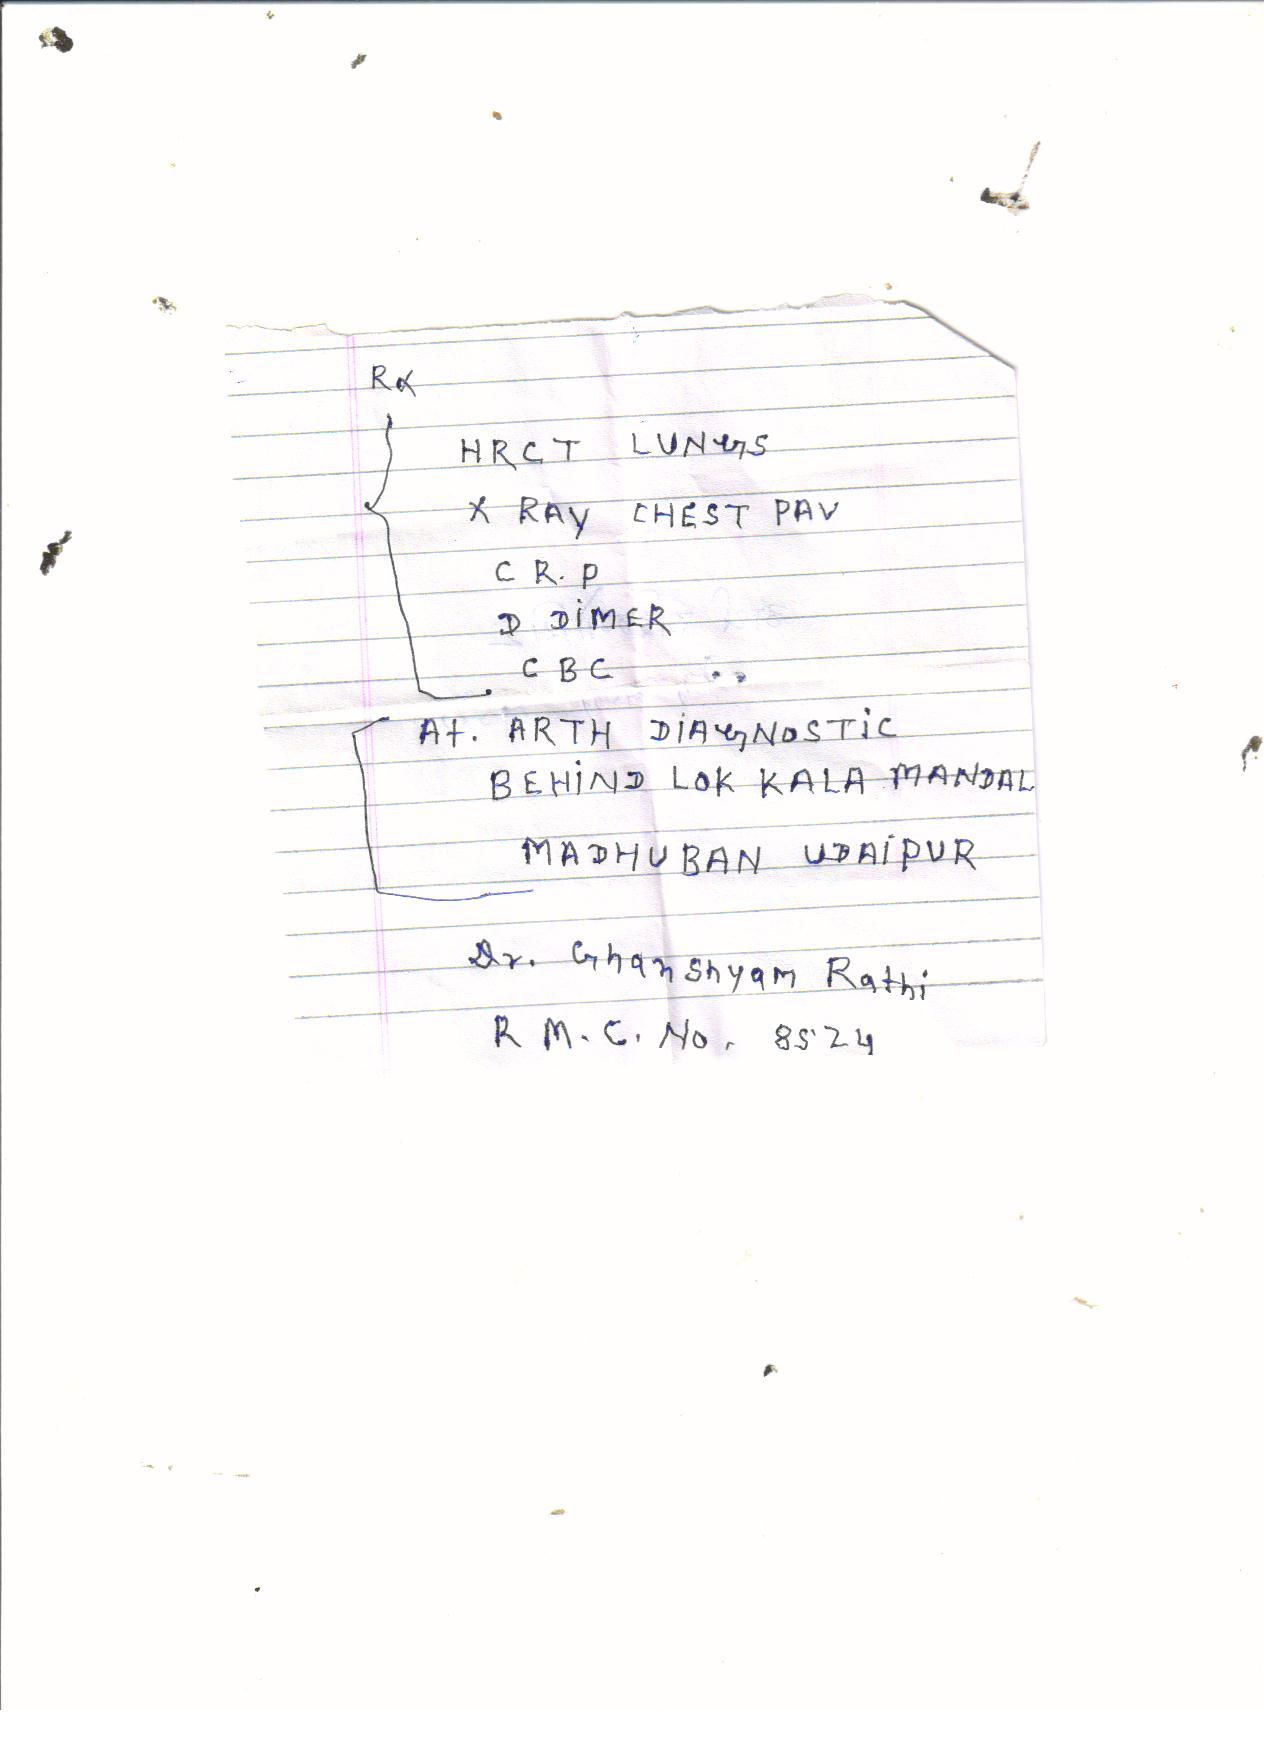 Rx
HRCT LUNGS
X RAY CHEST PAV
C R. P
D DiMER
C BC
At. ARTH DiAGNOSTiC
BEHiND LOK KALA MANDAL
MADHUBAN UDAiPUR
Dr. Ghanshyam Rathi
R M. C. No. 8524